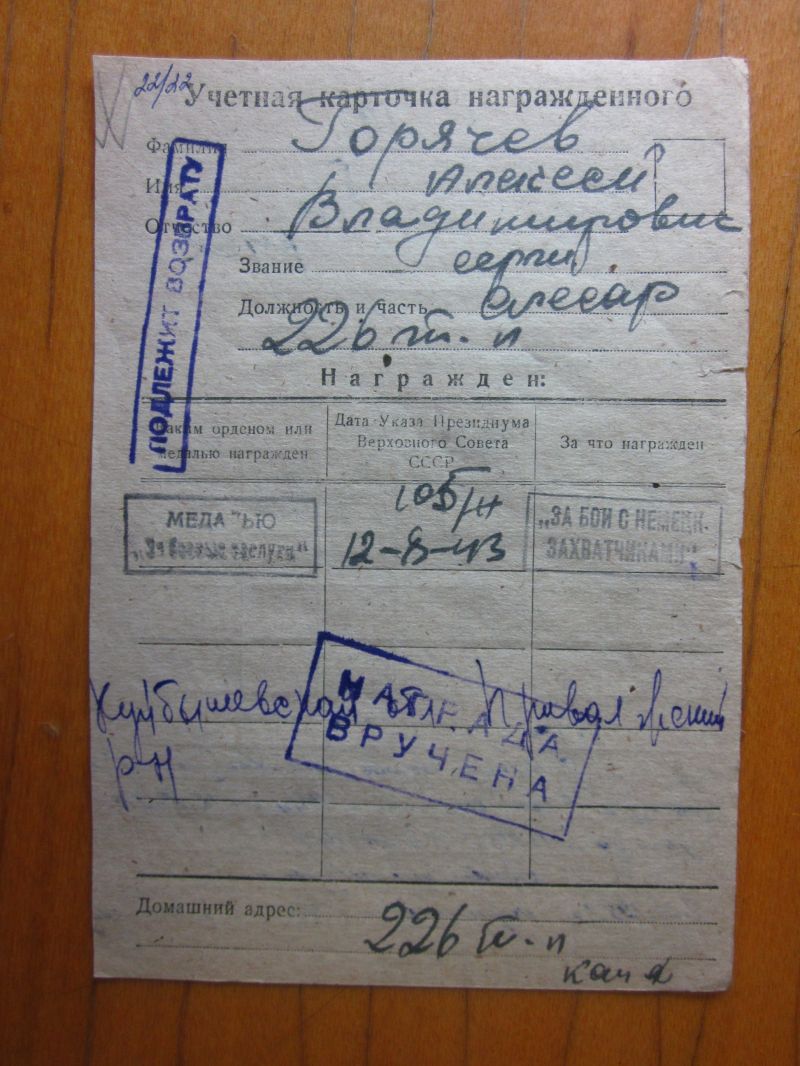 22/22
Учетная карточка награжденного
Фамилия Горячев
Имя Алексей
Отчество Владимирович
Звание серж
Должность и часть слесар
226 тп
ПОДЛЕЖИТ ВОЗВРАТУ
Награжден:
Каким орденом или медалью награжден
Дата Указа Президиума Верховного Совета СССР
За что награжден
МЕДАЛЬЮ
„За боевые заслуги“
105/н
12-8-43
„ЗА БОИ С НЕМЕЦК.
ЗАХВАТЧИКАМИ“
Куйбышевская обл. Приволжский
р-н
НАГРАДА
ВРУЧЕНА
Домашний адрес:
226 тп